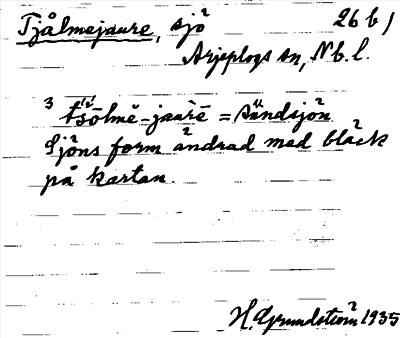 Tjålmejaure, sjö 26 b)
Arjeplogs sn, Nb. l.
3 tsōlmē-jaurē = Sundsjön
Sjöns form ändrad med bläck
på kartan.
H. Grundström 1935